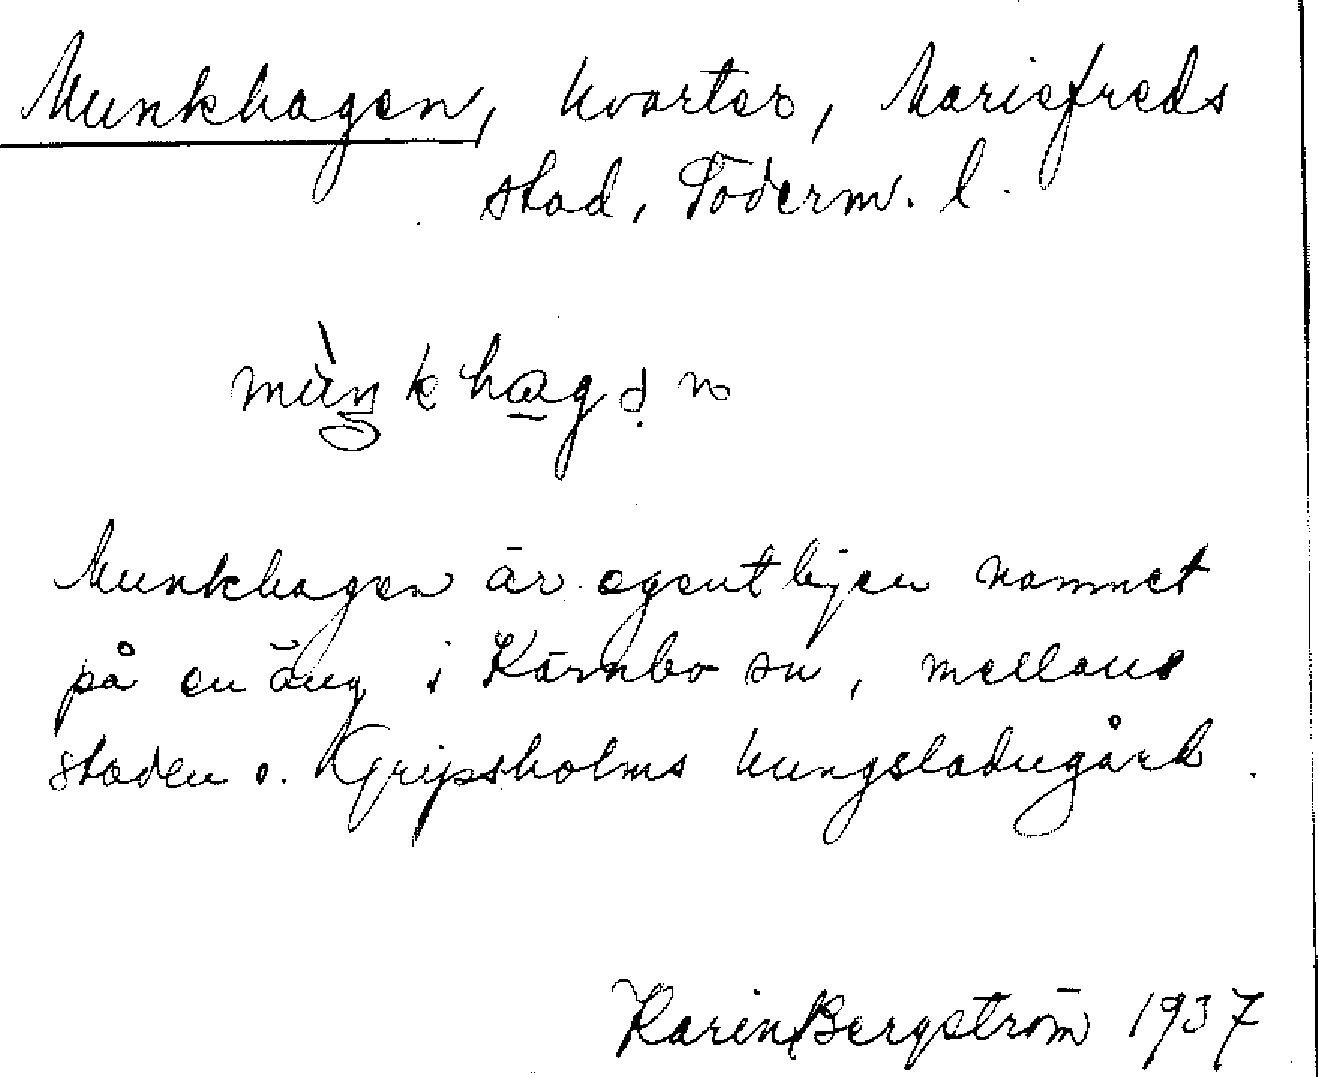 Munkhagen, kvarter, Mariefreds
stad, Söderm. l.
mùŋkhagən
Munkhagen är egentligen namnet
på en äng i Kärnbo sn, mellan
staden o. Gripsholms kungsladugård.
Karin Bergström 1937